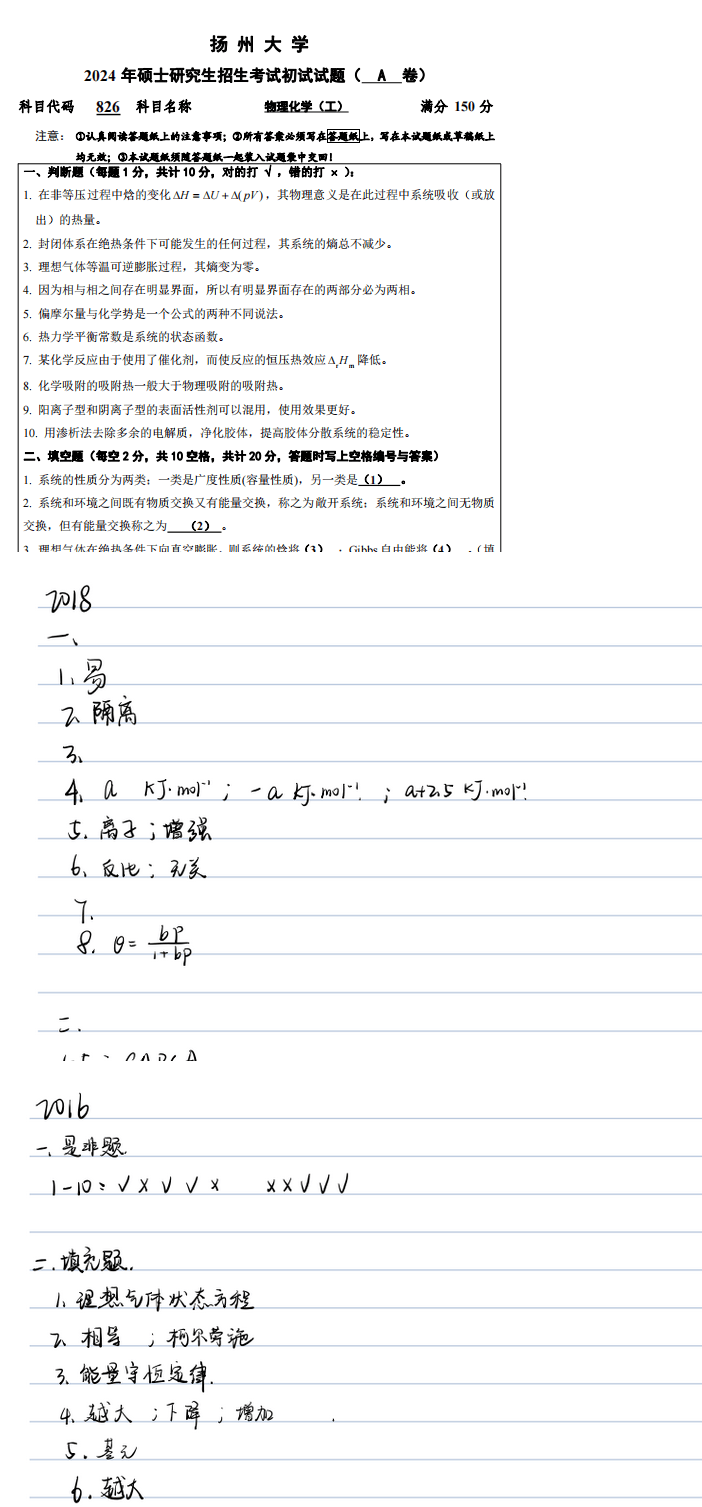 扬 州 大 学
2024 年硕士研究生招生考试初试试题（ A 卷）
科目代码 826 科目名称 物理化学（工） 满分 150 分
注意： ①认真阅读答题纸上的注意事项；②所有答案必须写在答题纸上，写在本试题纸或草稿纸上
均无效；③本试题纸须随答题纸一起装入试题袋中交回！
一、判断题（每题 1 分，共计 10 分，对的打 √ ，错的打 × ）：
1. 在非等压过程中焓的变化 ΔH = ΔU + Δ(pV) ，其物理意义是在此过程中系统吸收（或放
出）的热量。
2. 封闭体系在绝热条件下可能发生的任何过程，其系统的熵总不减少。
3. 理想气体等温可逆膨胀过程，其熵变为零。
4. 因为相与相之间存在明显界面，所以有明显界面存在的两部分必为两相。
5. 偏摩尔量与化学势是一个公式的两种不同说法。
6. 热力学平衡常数是系统的状态函数。
7. 某化学反应由于使用了催化剂，而使反应的恒压热效应 ΔrHm 降低。
8. 化学吸附的吸附热一般大于物理吸附的吸附热。
9. 阳离子型和阴离子型的表面活性剂可以混用，使用效果更好。
10. 用渗析法去除多余的电解质，净化胶体，提高胶体分散系统的稳定性。
二、填空题（每空 2 分，共 10 空格，共计 20 分，答题时写上空格编号与答案）
1. 系统的性质分为两类：一类是广度性质(容量性质)，另一类是 (1) 。
2. 系统和环境之间既有物质交换又有能量交换，称之为敞开系统；系统和环境之间无物质
交换，但有能量交换称之为 (2) 。
3. 理想气体在绝热条件下向真空膨胀，则系统的焓将 (3) ；Gibbs 自由能将 (4) 。（填
2018
一、
1、易
2、隔离
3、
4、a kJ·mol⁻¹ ； -a kJ·mol⁻¹ ； a+2.5 kJ·mol⁻¹
5、离子；增强
6、反比；无关
7.
8. θ= bp/1+bp
二.
2016
一、是非题.
1-10：√ × √ √ × × × √ √ √
二.填充题.
1、理想气体状态方程
2、相等 ；柯尔劳施
3、能量守恒定律.
4、越大 ；下降 ；增加
5.基元
6.越大